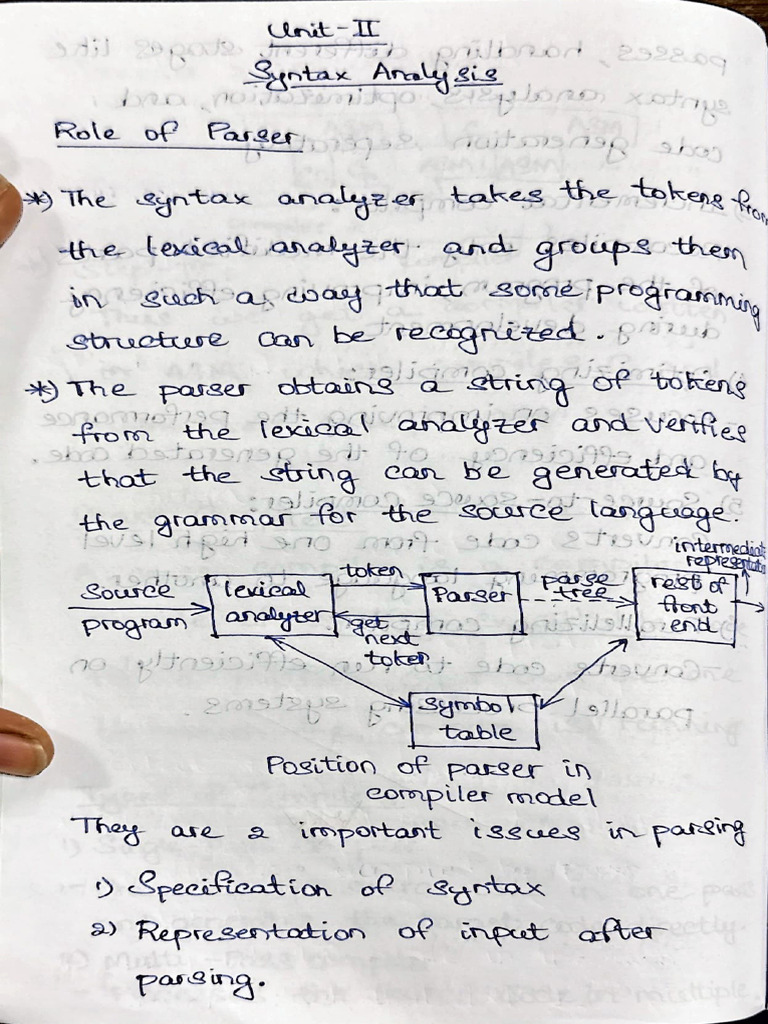 Unit-II
Syntax Analysis
Role of Parser
*) The syntax analyzer takes the tokens from
the lexical analyzer and groups them
in such a way that some programming
structure can be recognized.
*) The parser obtains a string of tokens
from the lexical analyzer and verifies
that the string can be generated by
the grammar for the source language.
source
program
lexical
analyzer
token
get
next
token
Parser
parse
tree
rest of
front
end
intermediate
representation
symbol
table
Position of parser in
compiler model
They are 2 important issues in parsing
1) Specification of syntax
2) Representation of input after
parsing.